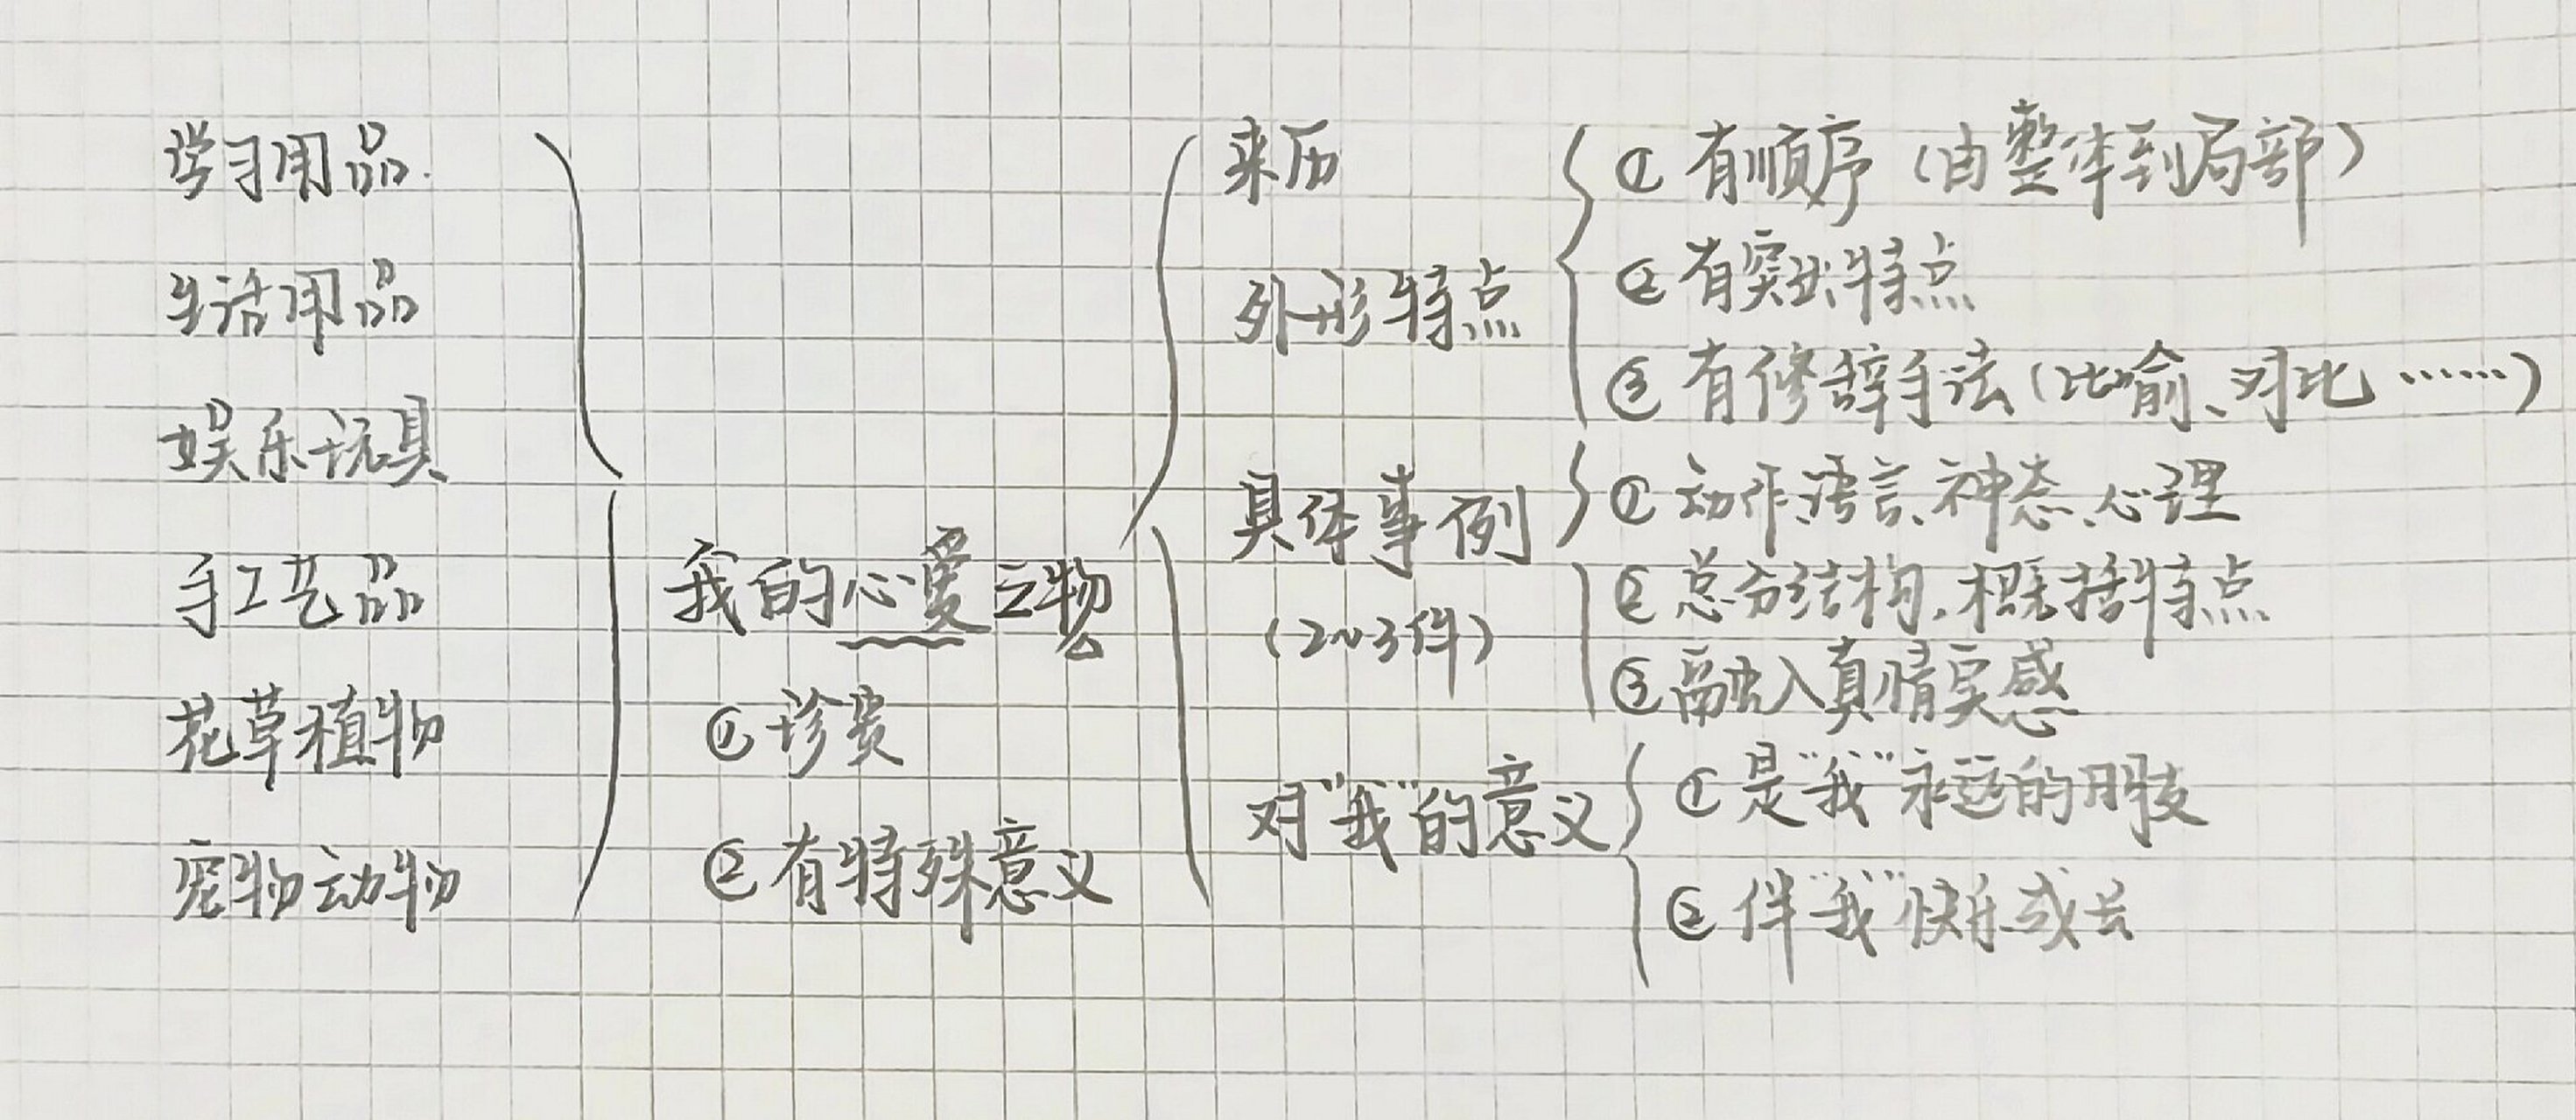 学习用品
生活用品
娱乐玩具
手工艺品
花草植物
宠物动物
我的心爱之物
①珍贵
②有特殊意义
来历
外形特点
①有顺序（由整体到局部）
②有突出特点
③有修辞手法（比喻、对比……）
具体事例
（2~3件）
①动作、语言、神态、心理
②总分结构，概括特点
③融入真情实感
对“我”的意义
①是“我”永远的朋友
②伴“我”快乐成长